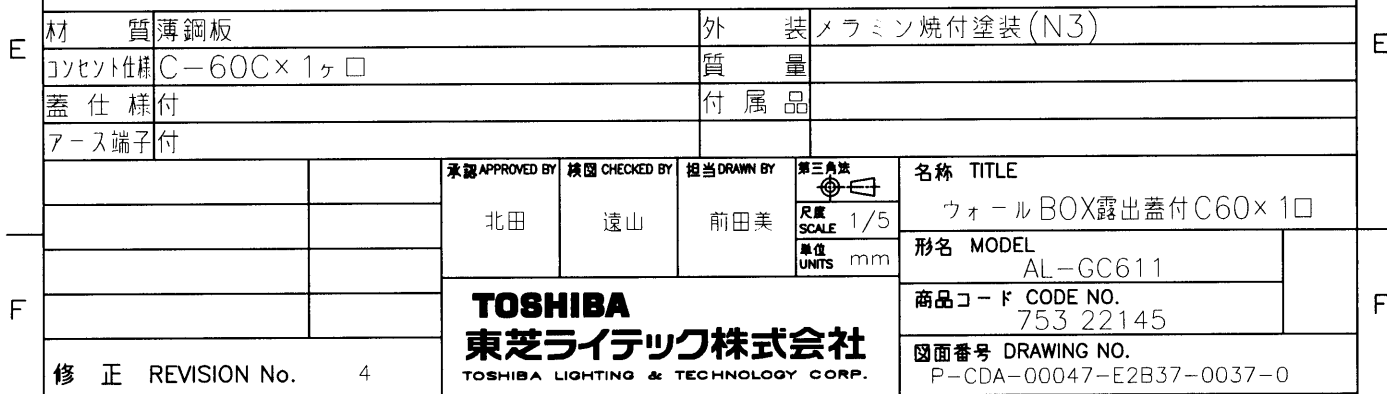 材 質 薄鋼板 外 装 メラミン焼付塗装(N3)
コンセント仕様 C-60C×1ヶ口 質 量
蓋仕様 付 付属品
アース端子 付
承認 APPROVED BY 検図 CHECKED BY 担当 DRAWN BY 第三角法
北田 遠山 前田美
尺度 SCALE 1/5
単位 UNITS mm
名称 TITLE
ウォールBOX露出蓋付C60×1口
形名 MODEL
AL-GC611
商品コード CODE NO.
753 22145
図面番号 DRAWING NO.
P-CDA-00047-E2B37-0037-0
TOSHIBA
東芝ライテック株式会社
TOSHIBA LIGHTING & TECHNOLOGY CORP.
修 正 REVISION No. 4
E
E
F
F